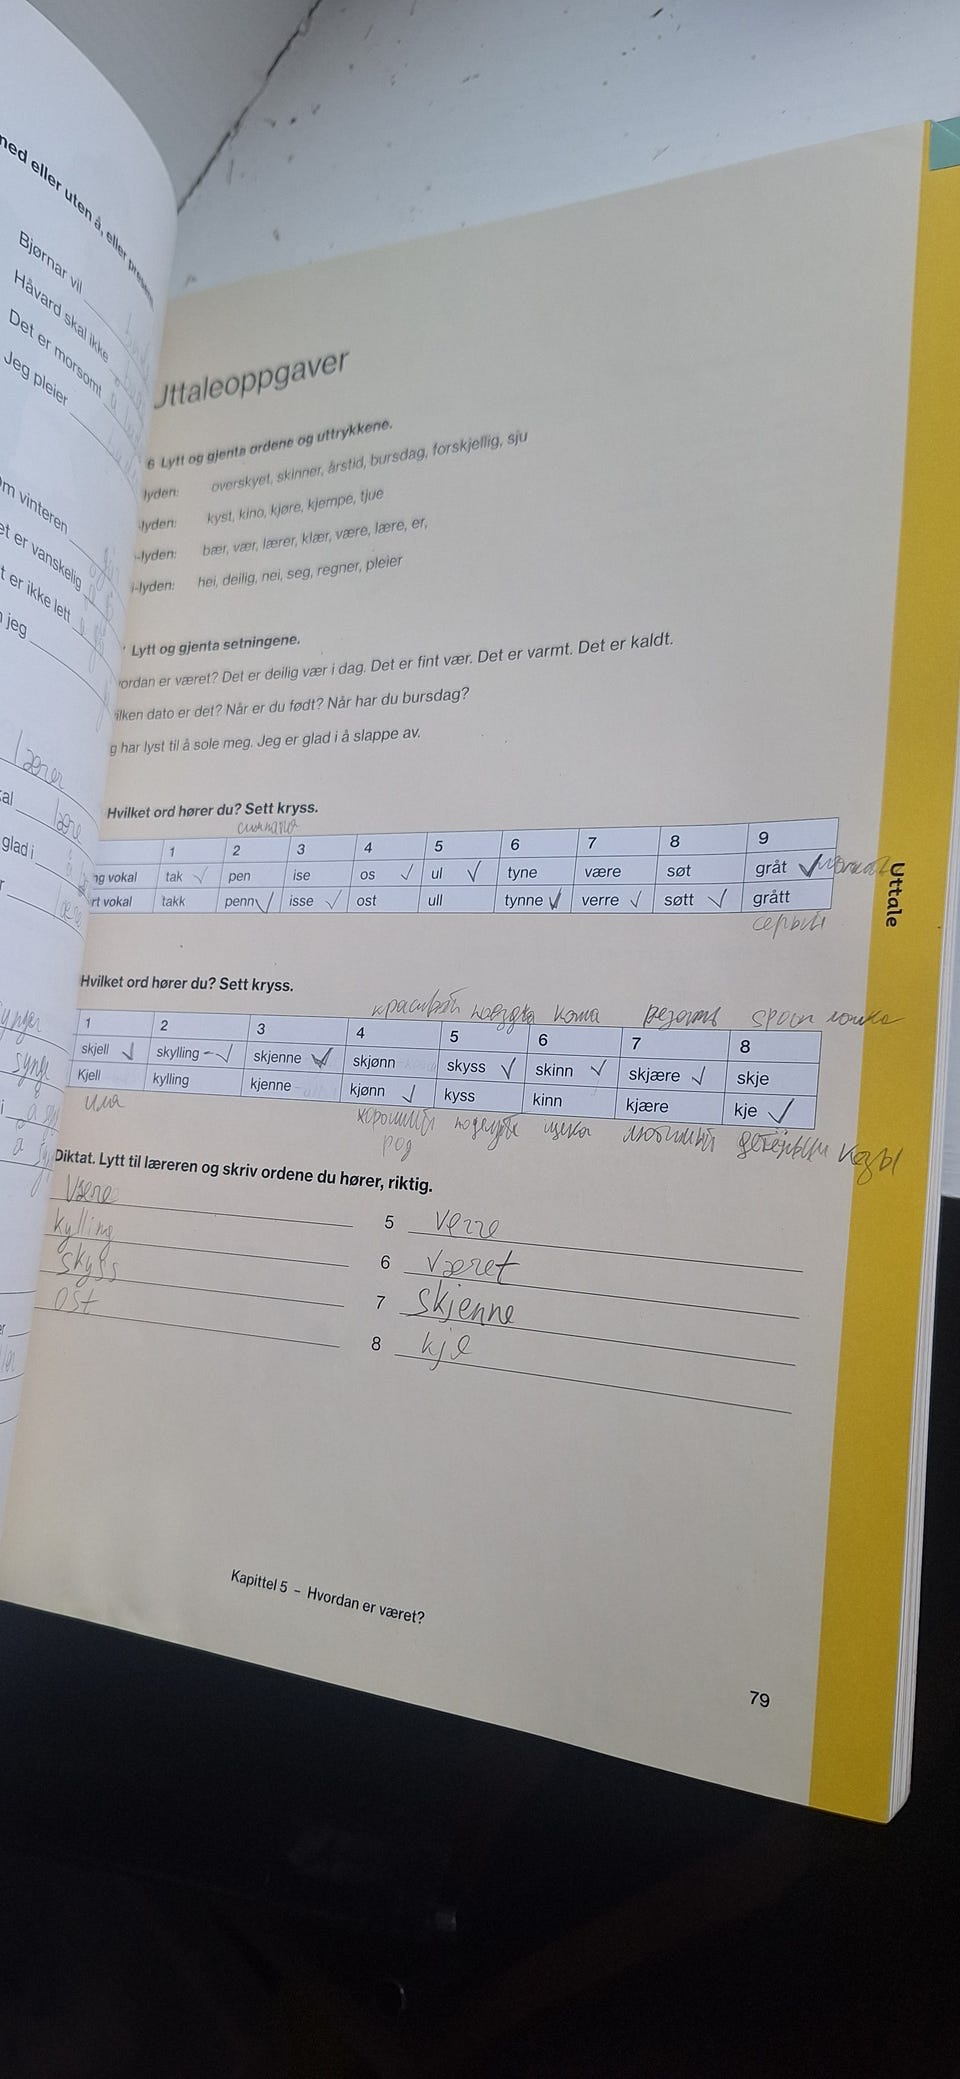 ned eller uten å, eller presens
Bjørnar vil
Håvard skal ikke
Det er morsomt
Jeg pleier
om vinteren
et er vanskelig
t er ikke lett
jeg
lærer
lære
glad i
synger
synge
Uttaleoppgaver
6 Lytt og gjenta ordene og uttrykkene.
lyden: overskyet, skinner, årstid, bursdag, forskjellig, sju
-lyden: kyst, kino, kjøre, kjempe, tjue
-lyden: bær, vær, lærer, klær, være, lære, er,
i-lyden: hei, deilig, nei, seg, regner, pleier
Lytt og gjenta setningene.
ordan er været? Det er deilig vær i dag. Det er fint vær. Det er varmt. Det er kaldt.
ilken dato er det? Når er du født? Når har du bursdag?
g har lyst til å sole meg. Jeg er glad i å slappe av.
Hvilket ord hører du? Sett kryss.
1 2 3 4 5 6 7 8 9
ng vokal tak ✓ pen ise os ✓ ul ✓ tyne være søt gråt ✓
rt vokal takk penn ✓ isse ✓ ost ull tynne ✓ verre ✓ søtt ✓ grått
серый
Uttale
Hvilket ord hører du? Sett kryss.
красивый кожа spoon ложка
1 2 3 4 5 6 7 8
skjell ✓ skylling ✓ skjenne ✓ skjønn skyss ✓ skinn ✓ skjære ✓ skje
Kjell kylling kjenne kjønn ✓ kyss kinn kjære kje ✓
имя поцелуй щека любимый детёныши козы
род
Diktat. Lytt til læreren og skriv ordene du hører, riktig.
være
kylling
skyss
ost
5 verre
6 været
7 skjenne
8 kje
Kapittel 5 – Hvordan er været?
79